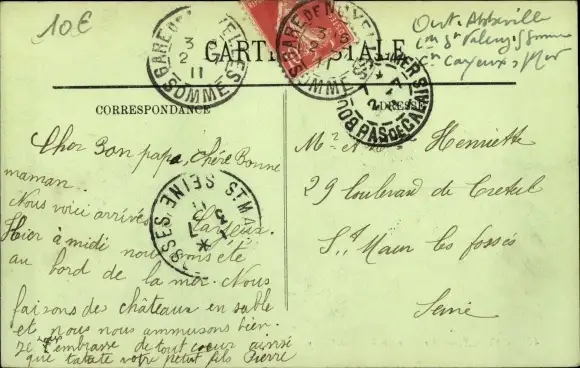 10€
Out. Abbeville
Cayeux s/ Mer
CARTE POSTALE
GARE DE NOYELLES
SOMME
3
2
11
GARE DE NOYELLES
SOMME
3
2
11
BOULOGNE SUR MER
PAS DE CALAIS
ST MAUR LES FOSSES
SEINE
CORRESPONDANCE
ADRESSE
Cher Bon papa, chère Bonne
maman
Nous voici arrivés Cayeux.
Hier à midi nous été
au bord de la mer. Nous
faisons des châteaux en sable
et nous nous ammusons bien.
Je vous embrasse de tout coeur ainsi
que tatate votre petit fils Pierre
Mr et Henriette
29 boulevard de Creteil
St Maur les fossés
Seine